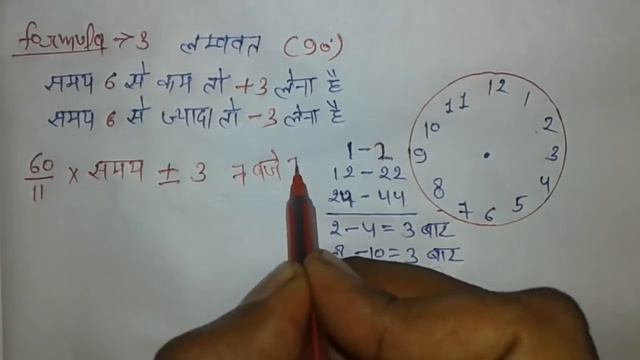 formula → 3 लम्बवत (90°)
समय 6 से कम तो +3 लेना है
समय 6 से ज्यादा तो -3 लेना है
60/11 × समय ± 3 7 बजे
1 - 2
12 - 22
24 - 44
2 - 4 = 3 बार
- 10 = 3 बार
12
1
2
3
4
5
6
7
8
9
10
11